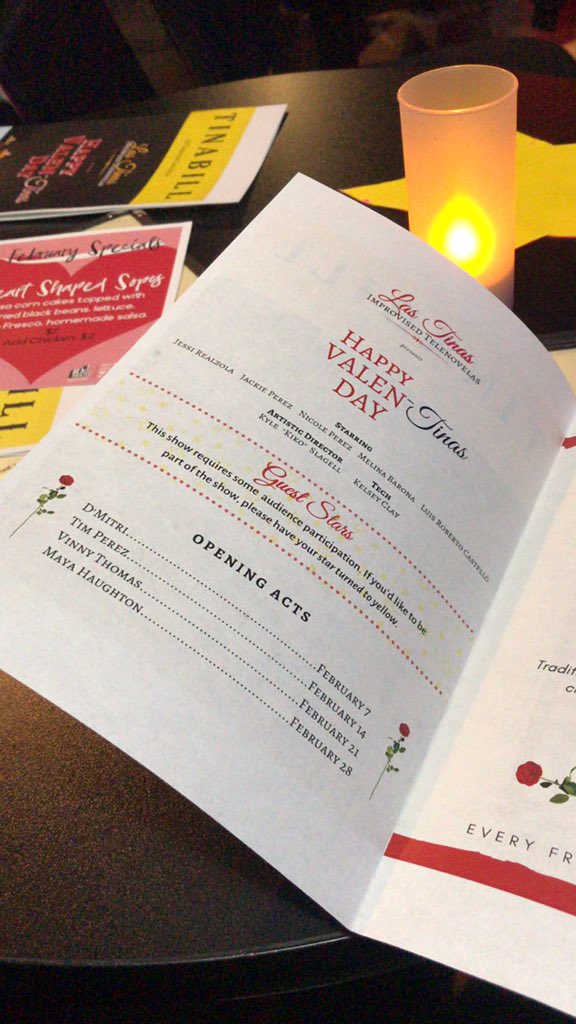 TINABILL
Las Tinas
HAPPY
VALENTinas
DAY
February Specials
Heart Shaped Sopes
corn cakes topped with
black beans, lettuce,
Fresco, homemade salsa.
$7
Add Chicken: $2
BILL
Las Tinas
IMPROVISED TELENOVELAS
presents
HAPPY
VALEN-Tinas
DAY
STARRING
JESSI REALZOLA JACKIE PEREZ NICOLE PEREZ MELINA BARONA LUIS ROBERTO CASTELLÓ
ARTISTIC DIRECTOR TECH
KYLE "KIKO" SLAGELL KELSEY CLAY
Guest Stars
This show requires some audience participation. If you'd like to be
part of the show, please have your star turned to yellow.
OPENING ACTS
D'MITRI FEBRUARY 7
TIM PEREZ FEBRUARY 14
VINNY THOMAS FEBRUARY 21
MAYA HAUGHTON FEBRUARY 28
EVERY